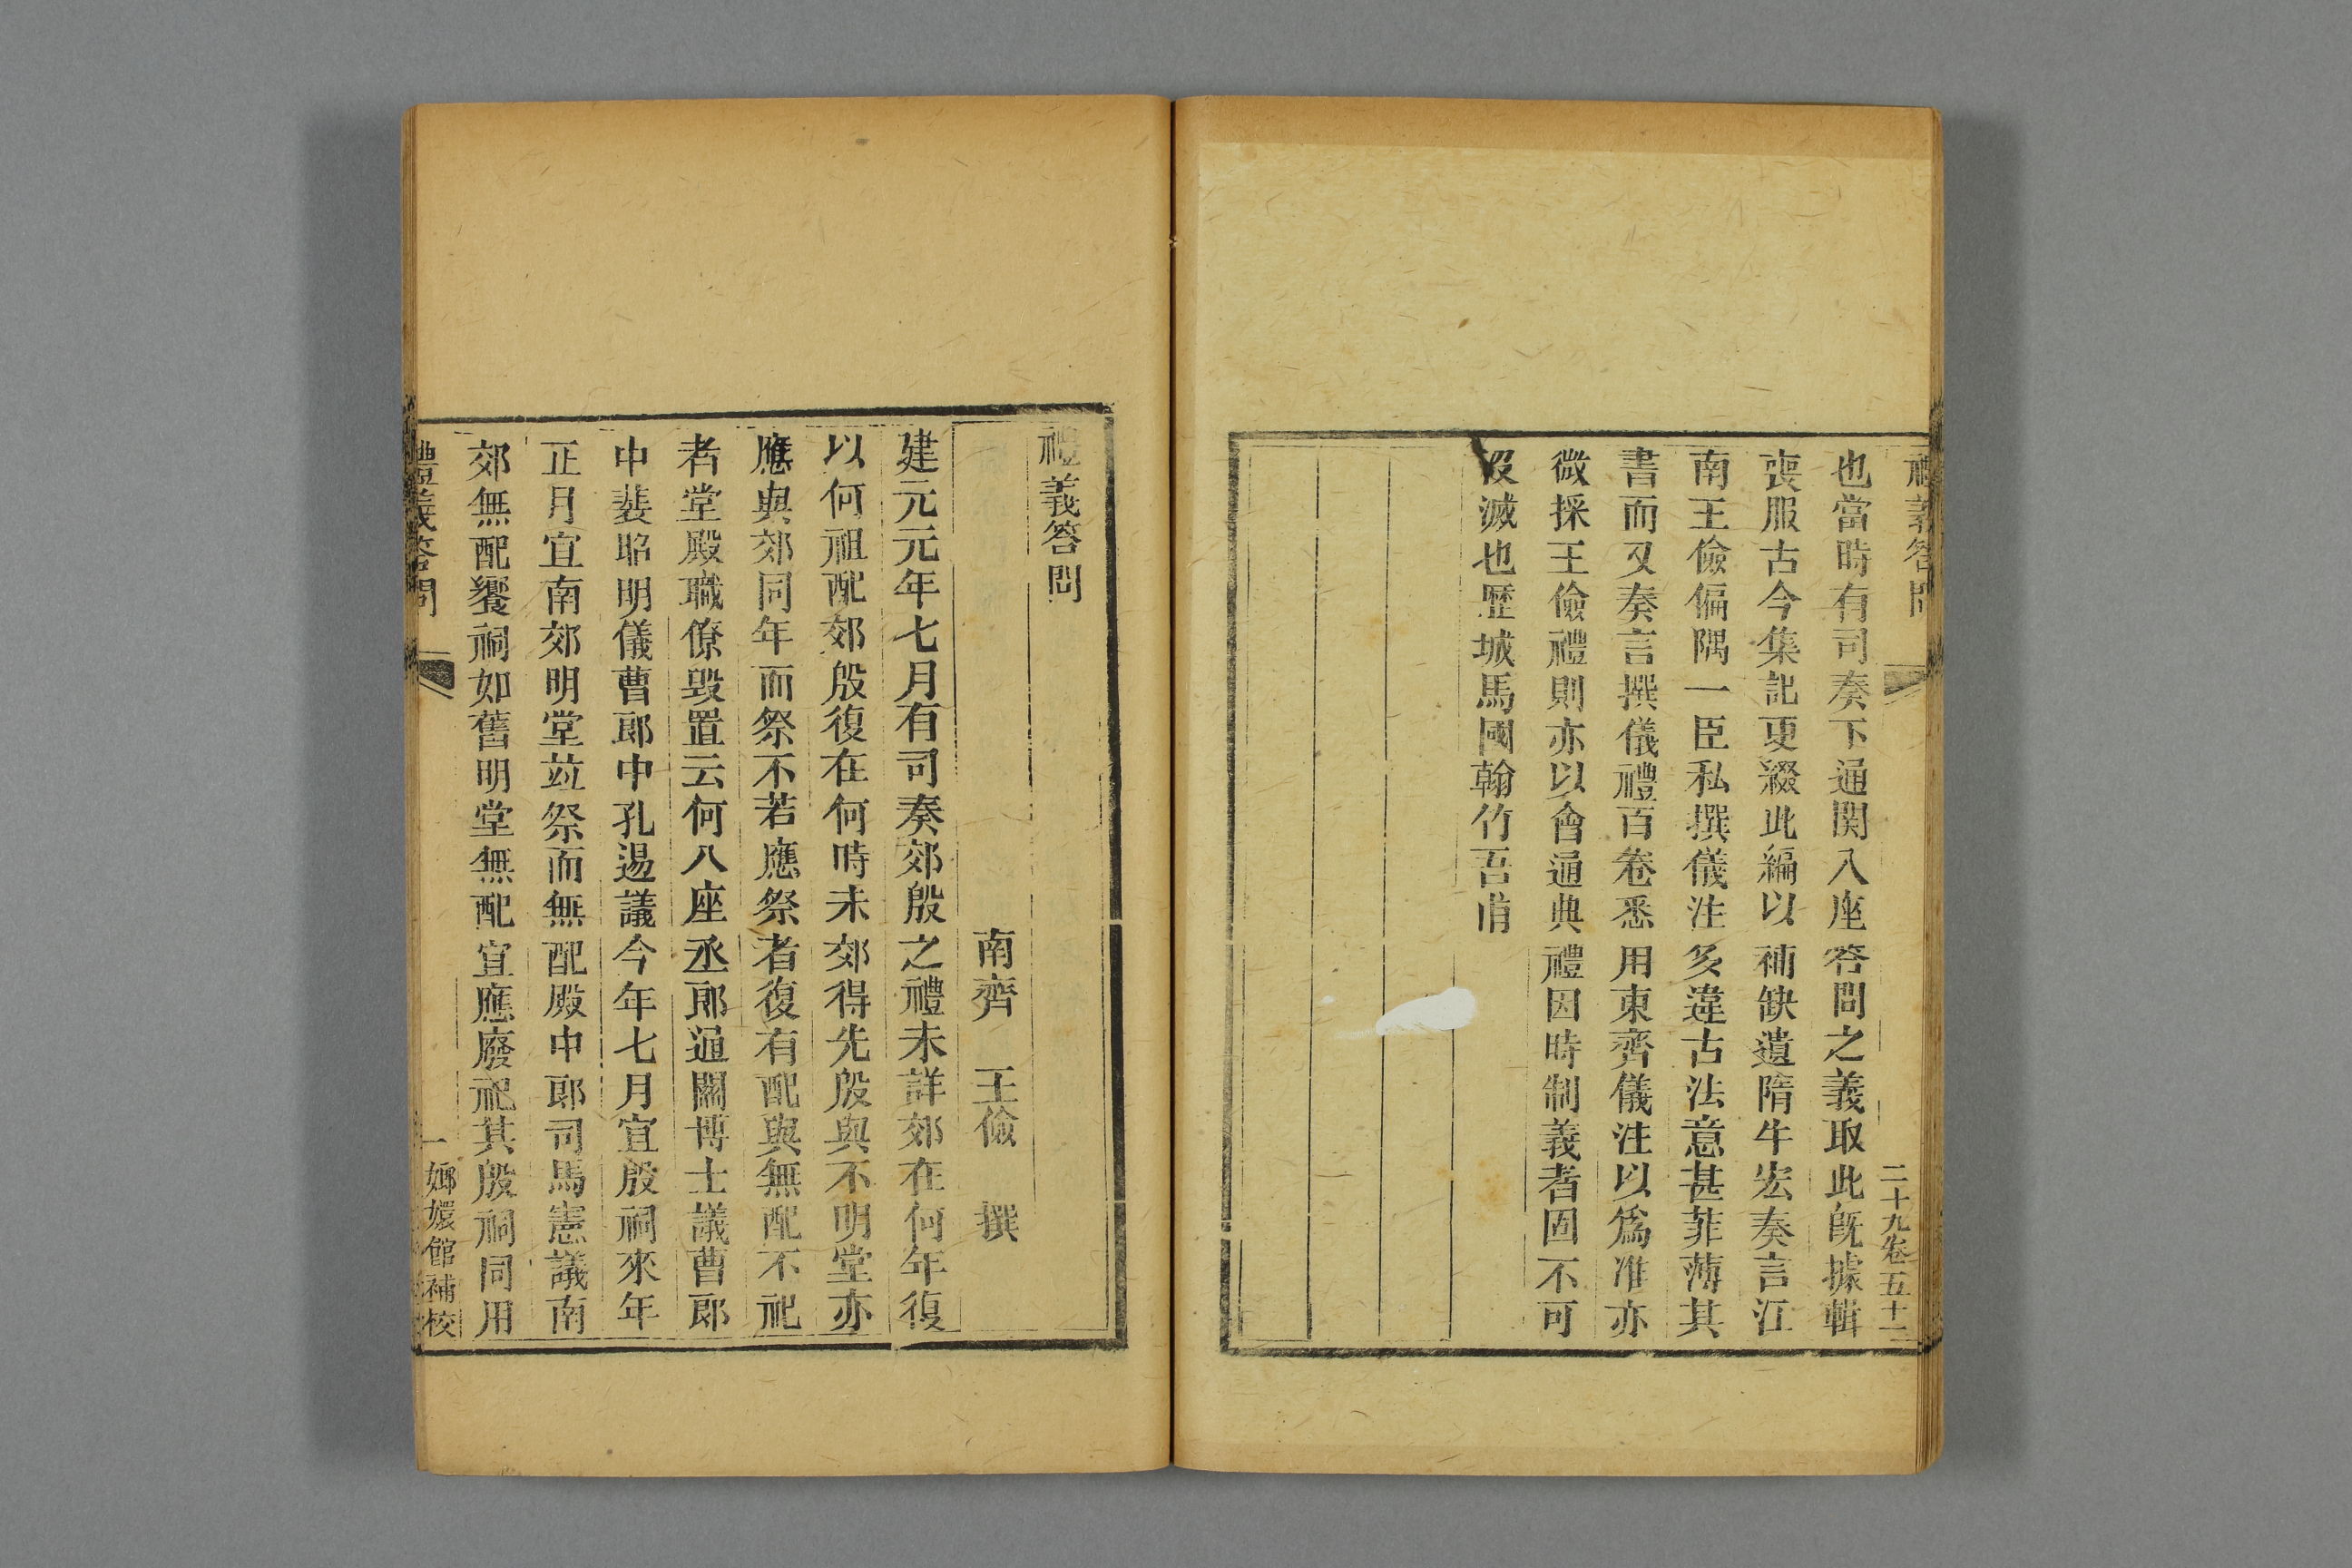 禮義答問
二十九卷五十二
也當時有司奏下通関入座答問之義取此旣據輯
喪服古今集記更綴此編以補缺遺隋牛宏奏言江
南王儉偏隅一臣私撰儀注多違古法意甚菲薄其
書而又奏言撰儀禮百卷悉用東齊儀注以爲准亦
微採王儉禮則亦以會通典禮因時制義者固不可
沒滅也歷城馬國翰竹吾甫
禮義答問
南齊 王儉 撰
建元元年七月有司奏郊殷之禮未詳郊在何年復
以何祖配郊殷復在何時未郊得先殷與不明堂亦
應與郊同年而祭不若應祭者復有配與無配不祀
者堂殿職僚毀置云何八座丞郎通關博士議曹郎
中裴昭明儀曹郎中孔逷議今年七月宜殷祠來年
正月宜南郊明堂竝祭而無配殿中郎司馬憲議南
郊無配饗祠如舊明堂無配宜應廢祀其殷祠同用
禮義答問
一
嫏嬛館補校